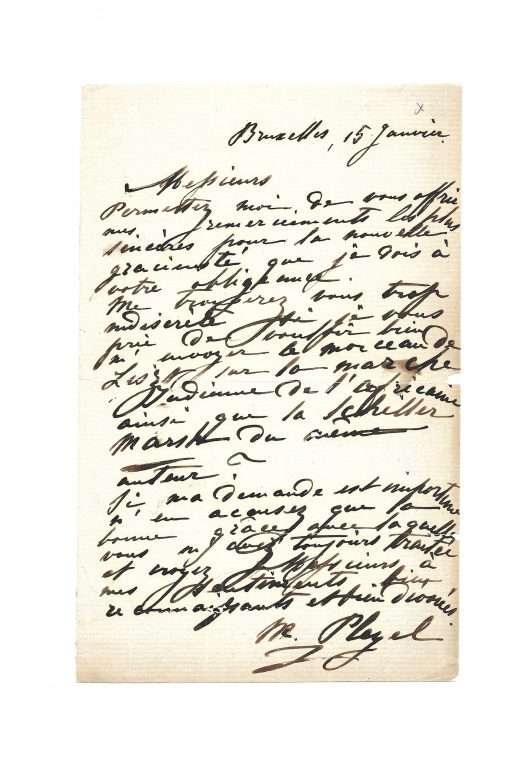 Bruxelles, 15 Janvier.
Messieurs
Permettez moi de vous offrir
mes remerciements les plus
sincères pour la nouvelle
gracieuseté que je dois à
votre obligeance.
Me trouverez vous trop
indiscrète si je vous
prie de vouloir bien
m'envoyer le morceau de
Liszt sur la marche
Indienne de l'africaine
ainsi que la Schiller
Marsh du même
auteur ?
Si ma demande est importune
n'en accusez que la
bonne grâce avec laquelle
vous m'avez toujours traitée
et croyez Messieurs à
mes Sentiments bien
reconnaissants et bien dévoués.
M. Pleyel